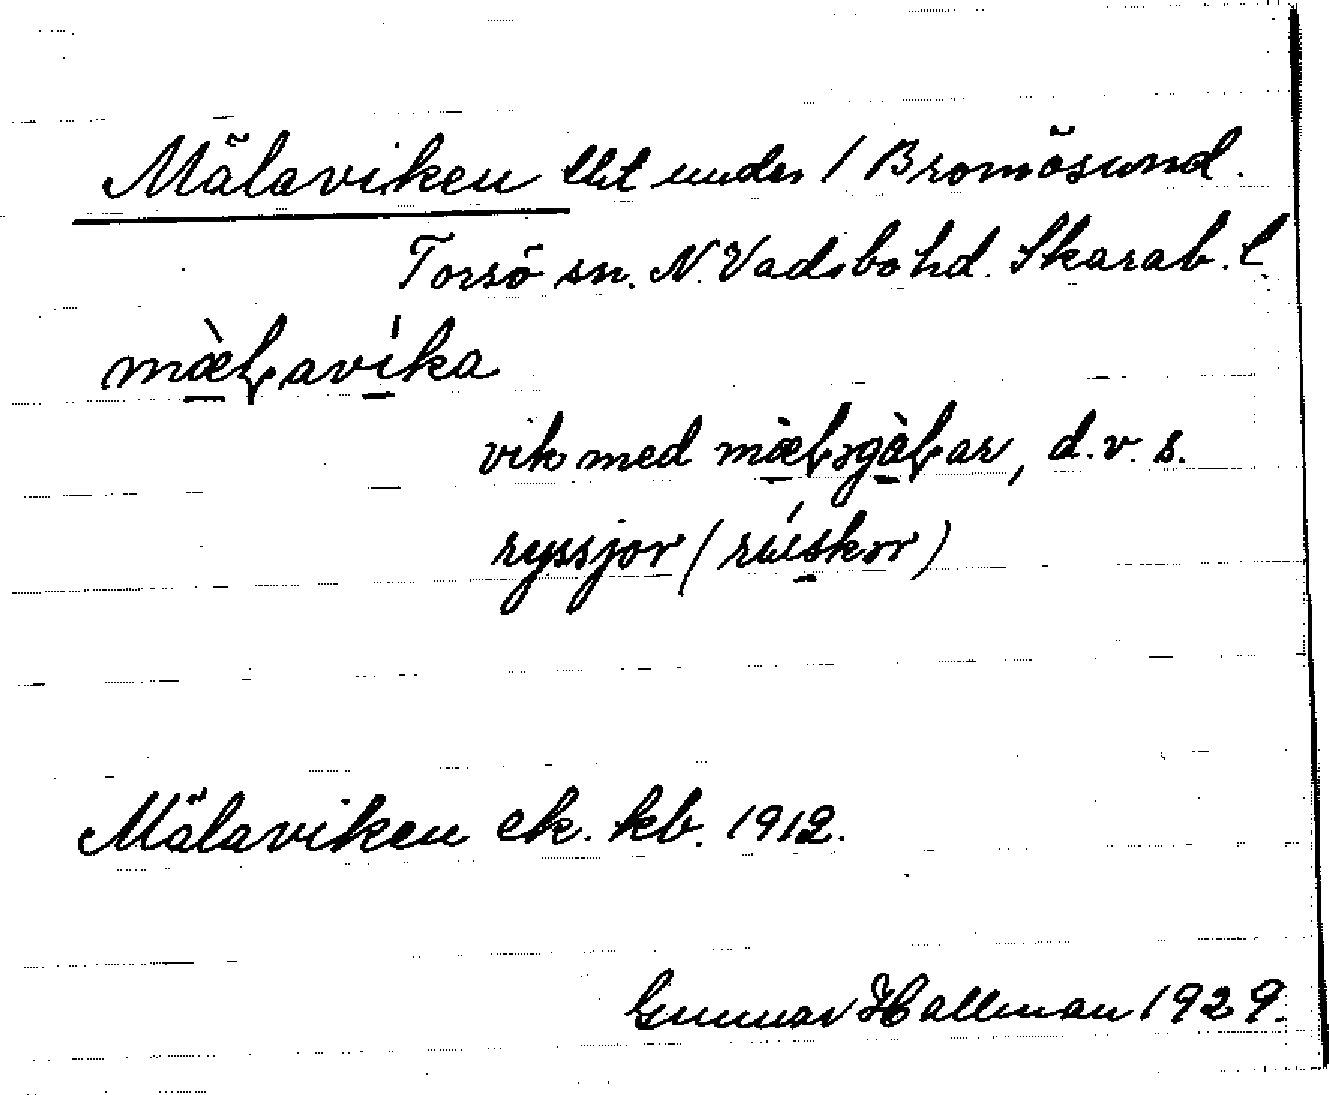 Mälaviken lht under 1 Bromösund.
Torsö sn. N. Vadsbo hd. Skarab. l.
mæ̀ɫavíka
vik med mæ̀ɫgàɫar, d.v.s.
ryssjor (rúskor)
Mälaviken ek. kb. 1912.
Gunnar Hallman 1929.